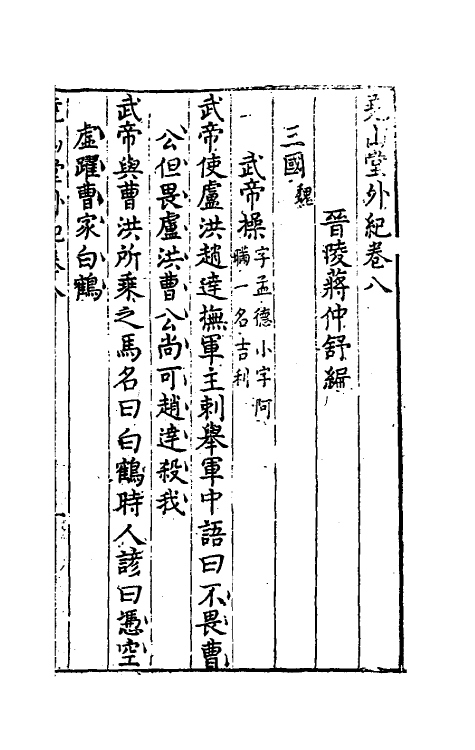 堯山堂外紀卷八
晉陵蔣仲舒編
三國 魏
武帝操 字孟德小字阿
瞞一名吉利
武帝使盧洪趙達撫軍主刺舉軍中語曰不畏曹
公但畏盧洪曹公尚可趙達殺我
武帝與曹洪所乘之馬名曰白鶴時人諺曰憑空
虛躍曹家白鶴
堯山堂外紀卷八
一